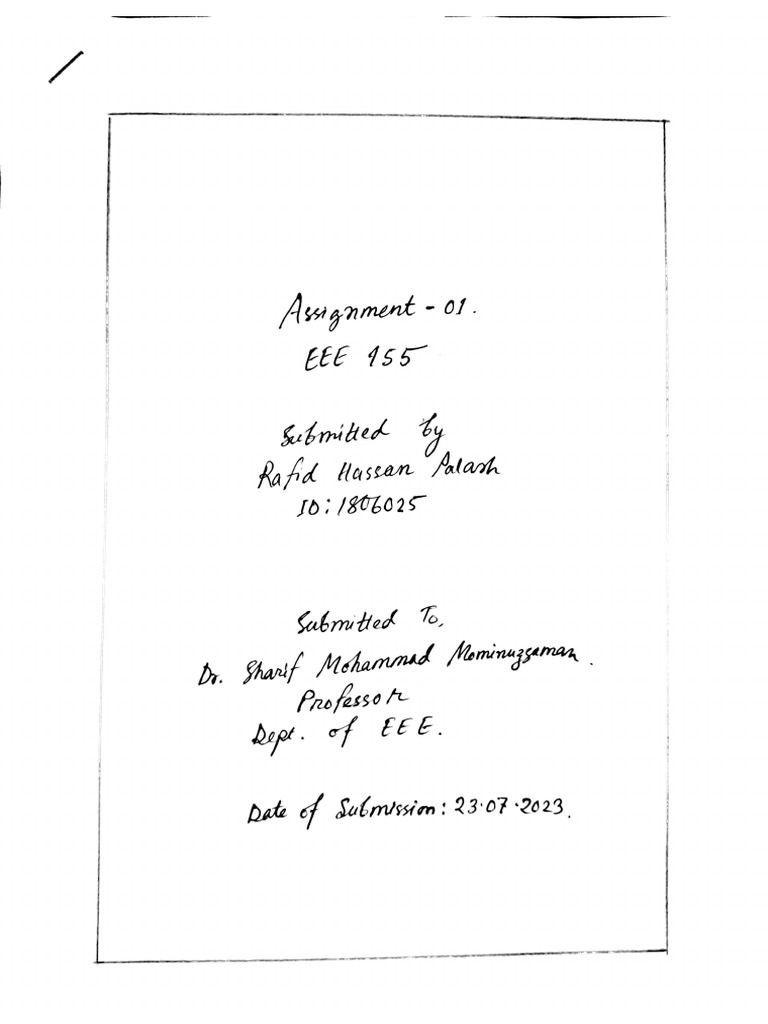 Assignment - 01.
EEE 455
Submitted by
Rafid Hassan Palash
ID: 1806025
Submitted To,
Dr. Sharif Mohammad Mominuzzaman.
Professor
Dept. of EEE.
Date of Submission: 23.07.2023.